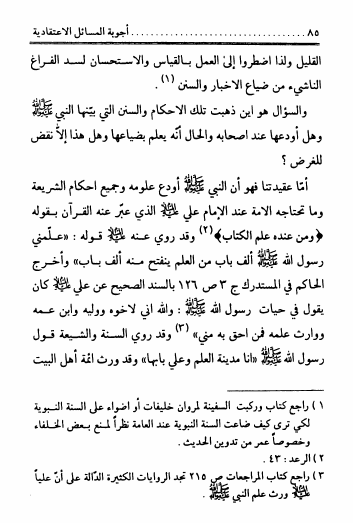 ٨٥ ........................................ أجوبة المسائل الاعتقادية
القليل ولذا اضطروا إلىٰ العمل بالقياس والاستحسان لسد الفراغ
الناشيء من ضياع الاخبار والسنن (١) .
والسؤال هو اين ذهبت تلك الاحكام والسنن التي بيّنها النبي ﷺ
وهل أودعها عند اصحابه والحال أنّه يعلم بضياعها وهل هذا إلاّ نقض
للغرض ؟
أمّا عقيدتنا فهو أن النبي ﷺ أودع علومه وجميع احكام الشريعة
وما تحتاجه الامة عند الإمام علي الذي عبّر عنه القرآن بقوله
﴿ومن عنده علم الكتاب﴾(٢) وقد روي عنه قوله : «علّمني
رسول الله ﷺ ألف باب من العلم ينفتح منه ألف باب» وأخرج
الحاكم في المستدرك ج ٣ ص ١٢٦ بالسند الصحيح عن علي كان
يقول في حيات رسول الله ﷺ : والله اني لاخوه ووليه وابن عمه
ووارث علمه فمن احق به مني» (٣) وقد روي السنة والشيعة قول
رسول الله ﷺ «انا مدينة العلم وعلي بابها» وقد ورث ائمة أهل البيت
١ ) راجع كتاب وركبت السفينة لمروان خليفات أو اضواء على السنة النبوية
لكي ترى كيف ضاعت السنة النبوية عند العامة نظراً لمنع بعض الخلفاء
وخصوصاً عمر من تدوين الحديث .
٢ ) الرعد : ٤٣ .
٣ ) راجع كتاب المراجعات ص ٢١٥ تجد الروايات الكثيرة الدّالة على أنّ علياً
ورث علم النبي ﷺ .